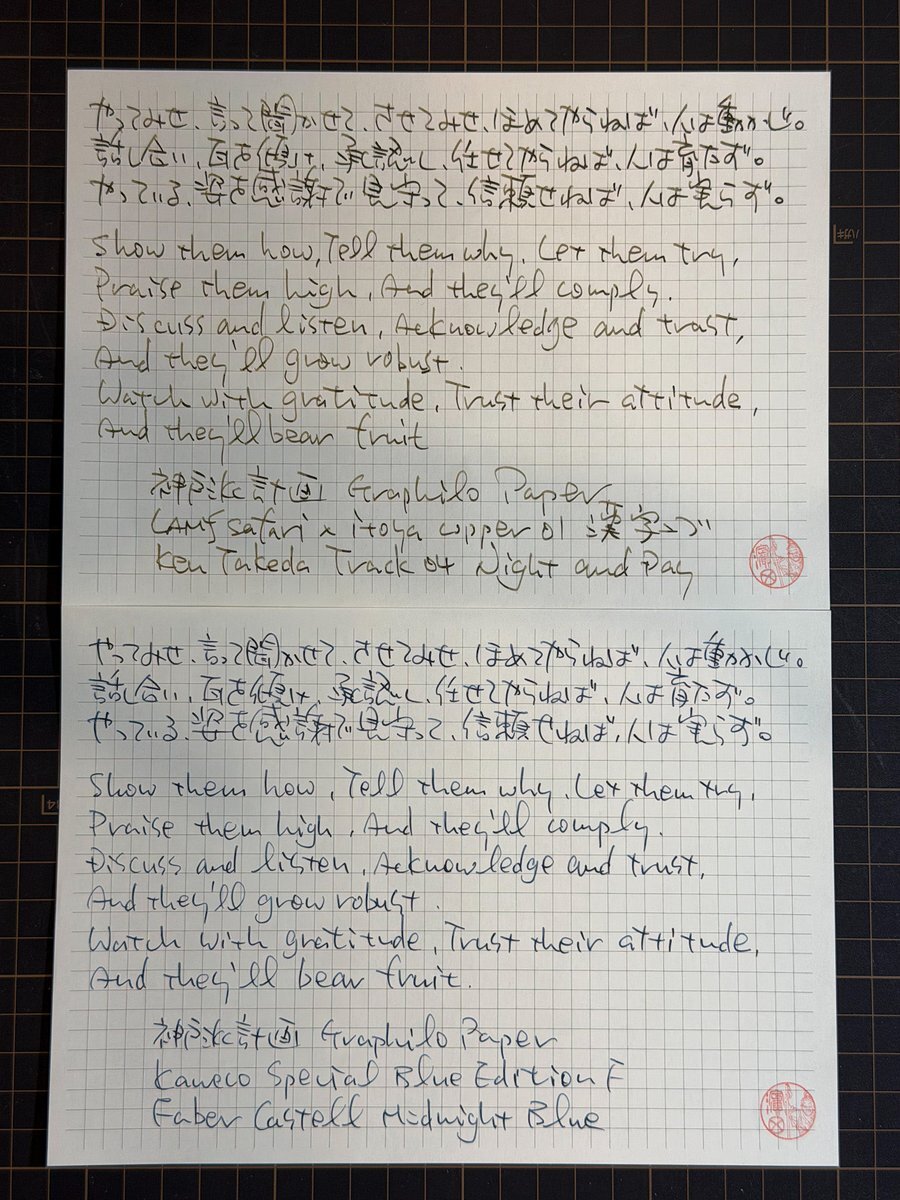 やってみせ、言って聞かせて、させてみせ、ほめてやらねば、人は動かじ。
話し合い、耳を傾け、承認し、任せてやらねば、人は育たず。
やっている、姿を感謝で見守って、信頼せねば、人は実らず。
Show them how, Tell them why, Let them try,
Praise them high, And they'll comply.
Discuss and listen, Acknowledge and trust,
And they'll grow robust.
Watch with gratitude, Trust their attitude,
And they'll bear fruit
神戸派計画 Graphilo Paper
LAMY safari x itoya copper 01 漢字ニブ
Ken Takeda Track 04 Night and Day
やってみせ、言って聞かせて、させてみせ、ほめてやらねば、人は動かじ。
話し合い、耳を傾け、承認し、任せてやらねば、人は育たず。
やっている、姿を感謝で見守って、信頼せねば、人は実らず。
Show them how, Tell them why, Let them try,
Praise them high, And they'll comply.
Discuss and listen, Acknowledge and trust,
And they'll grow robust.
Watch with gratitude, Trust their attitude,
And they'll bear fruit.
神戸派計画 Graphilo Paper
Kaweco Special Blue Edition F
Faber Castell Midnight Blue